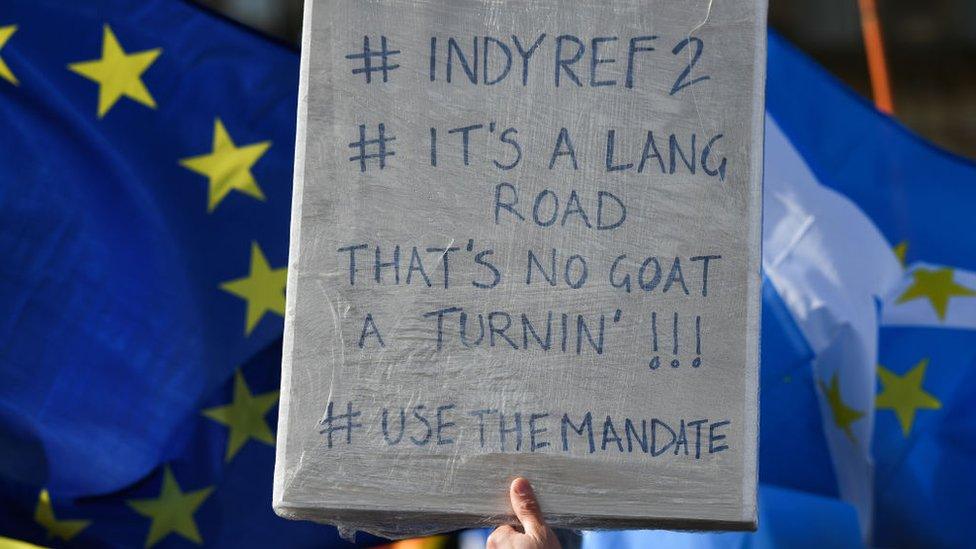 # INDYREF 2
# IT'S A LANG
ROAD
THAT'S NO GOAT
A TURNIN' !!!
# USE THE MANDATE